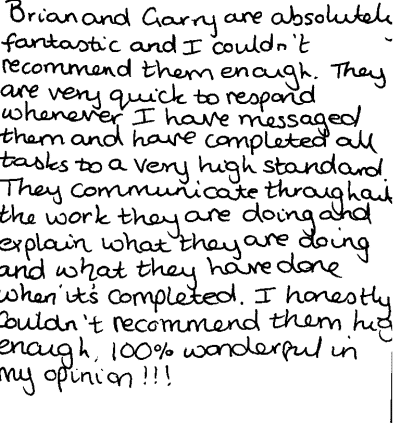 Brian and Garry are absolutely
fantastic and I couldn't
recommend them enough. They
are very quick to respond
whenever I have messaged
them and have completed all
tasks to a very high standard.
They communicate throughout
the work they are doing and
explain what they are doing
and what they have done
when it's completed. I honestly
couldn't recommend them hig
enough, 100% wonderful in
my opinion!!!